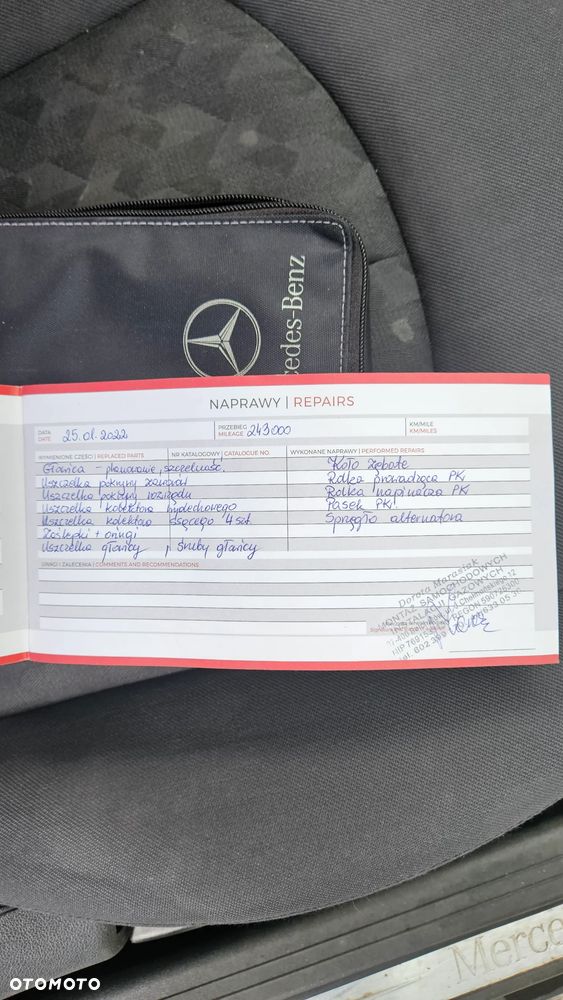 Mercedes-Benz
NAPRAWY | REPAIRS
DATA
DATE
25.01.2022
PRZEBIEG
MILEAGE
243000
KM/MILE
KM/MILES
WYMIENIONE CZĘŚCI | REPLACED PARTS
NR KATALOGOWY | CATALOGUE NO.
WYKONANE NAPRAWY | PERFORMED REPAIRS
Głowica – planowanie, szczelność.
Uszczelka pokrywy zaworów
Uszczelka pokrywy rozrządu
Uszczelka kolektora wydechowego
Uszczelka kolektora ssącego 4 szt
Zaślepki + oringi
Uszczelka głowicy, śruby głowicy
Koło zębate
Rolka prowadząca PK
Rolka napinacza PK
Pasek PK
Sprzęgło alternatora
UWAGI I ZALECENIA | COMMENTS AND RECOMMENDATIONS
Dorota Marasiak
MONTAŻ SAMOCHODOWYCH
INSTALACJI GAZOWYCH
tel. 602
Merce
OTOMOTO